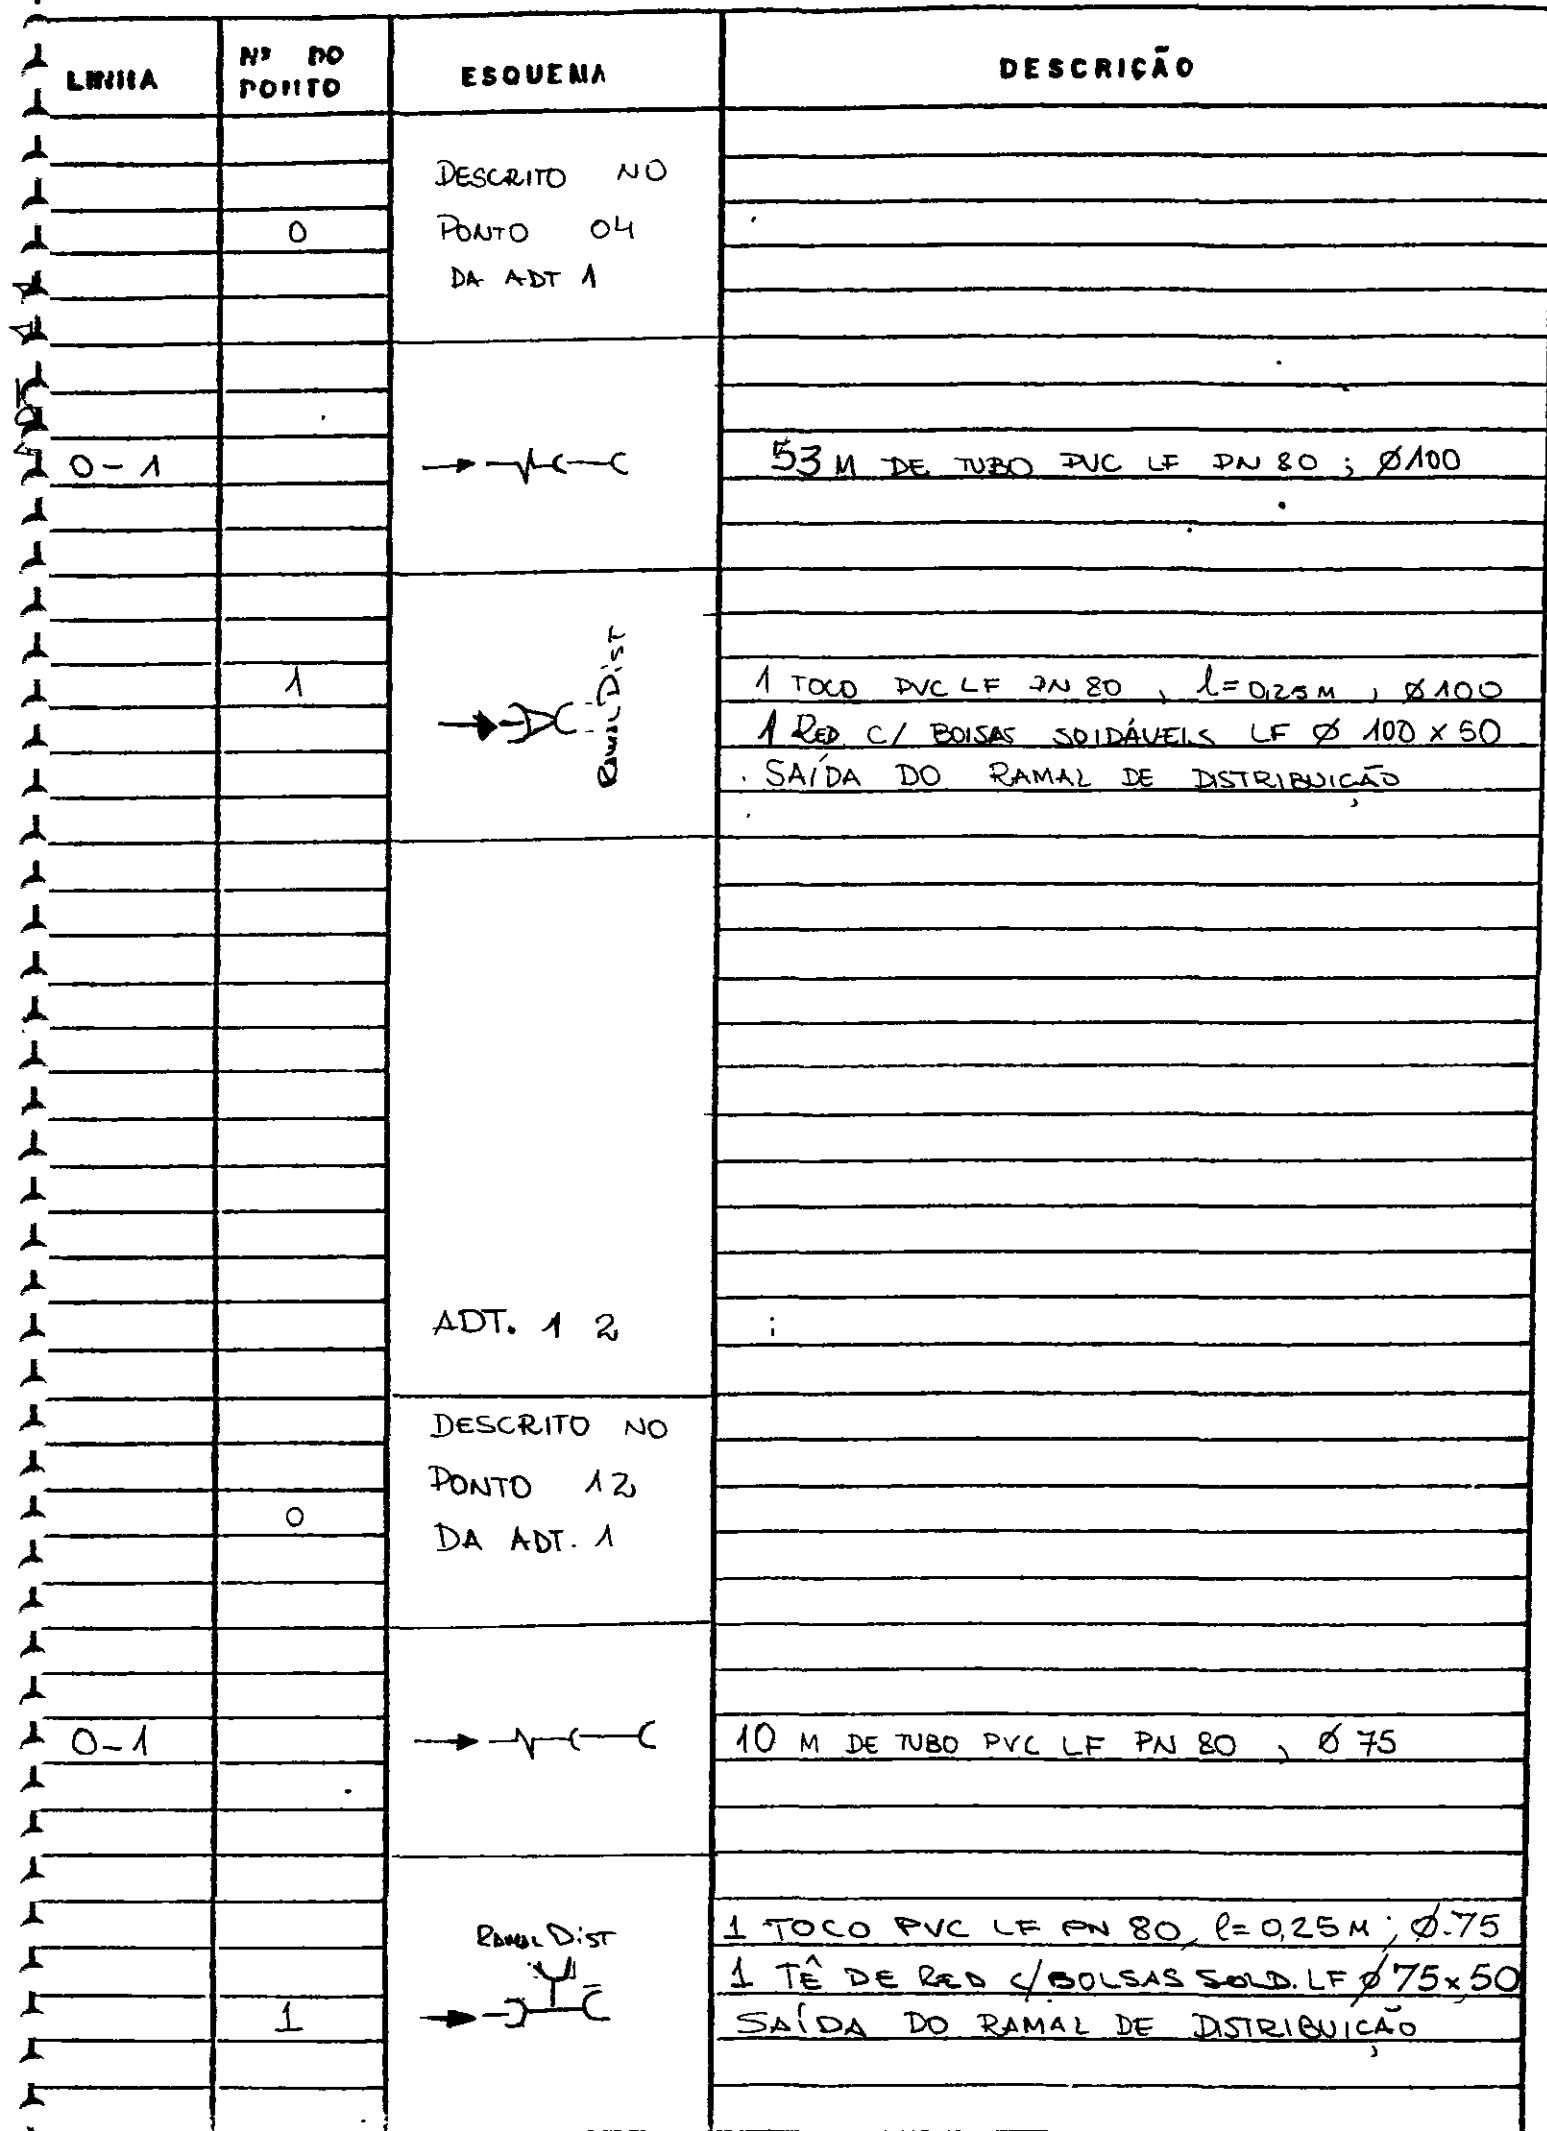 LINHA
Nº DO PONTO
ESQUEMA
DESCRIÇÃO
0
DESCRITO NO
PONTO 04
DA ADT 1
0-1
53 M DE TUBO PVC LF PN 80 ; Ø100
1
RAMAL DIST
1 TOCO PVC LF PN 80 , l=0,25M , Ø100
1 RED C/ BOLSAS SOLDÁVEIS LF Ø 100 x 50
SAÍDA DO RAMAL DE DISTRIBUIÇÃO
ADT. 1 2
0
DESCRITO NO
PONTO 12
DA ADT. 1
0-1
10 M DE TUBO PVC LF PN 80 , Ø 75
1
RAMAL DIST
1 TOCO PVC LF PN 80, l=0,25M ; Ø.75
1 TÊ DE RED C/BOLSAS SOLD. LF Ø 75x50
SAÍDA DO RAMAL DE DISTRIBUIÇÃO